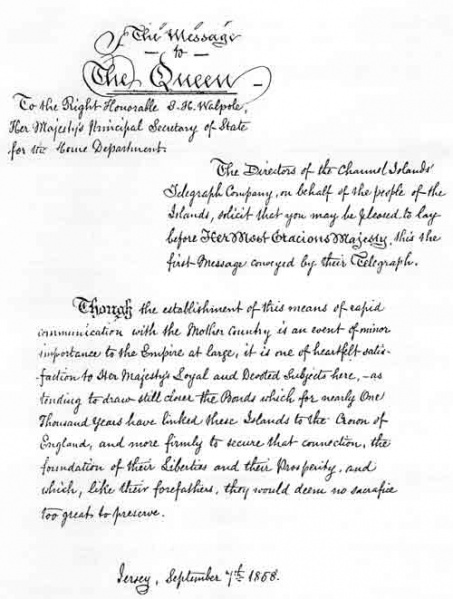 The Message
to
The Queen
To the Right Honorable S. H. Walpole,
Her Majesty's Principal Secretary of State
for the Home Department.
The Directors of the Channel Islands'
Telegraph Company, on behalf of the people of the
Islands, solicit that you may be pleased to lay
before Her Most Gracious Majesty, this the
first Message conveyed by their Telegraph.
Though the establishment of this means of rapid
communication with the Mother Country is an event of minor
importance to the Empire at large, it is one of heartfelt satis-
faction to Her Majesty's Loyal and Devoted Subjects here, - as
tending to draw still closer the Bonds which for nearly One
Thousand Years have linked these Islands to the Crown of
England, and more firmly to secure that connection, the
foundation of their Liberties and their Prosperity, and
which, like their forefathers, they would deem no sacrifice
too great to preserve.
Jersey, September 7th 1858.